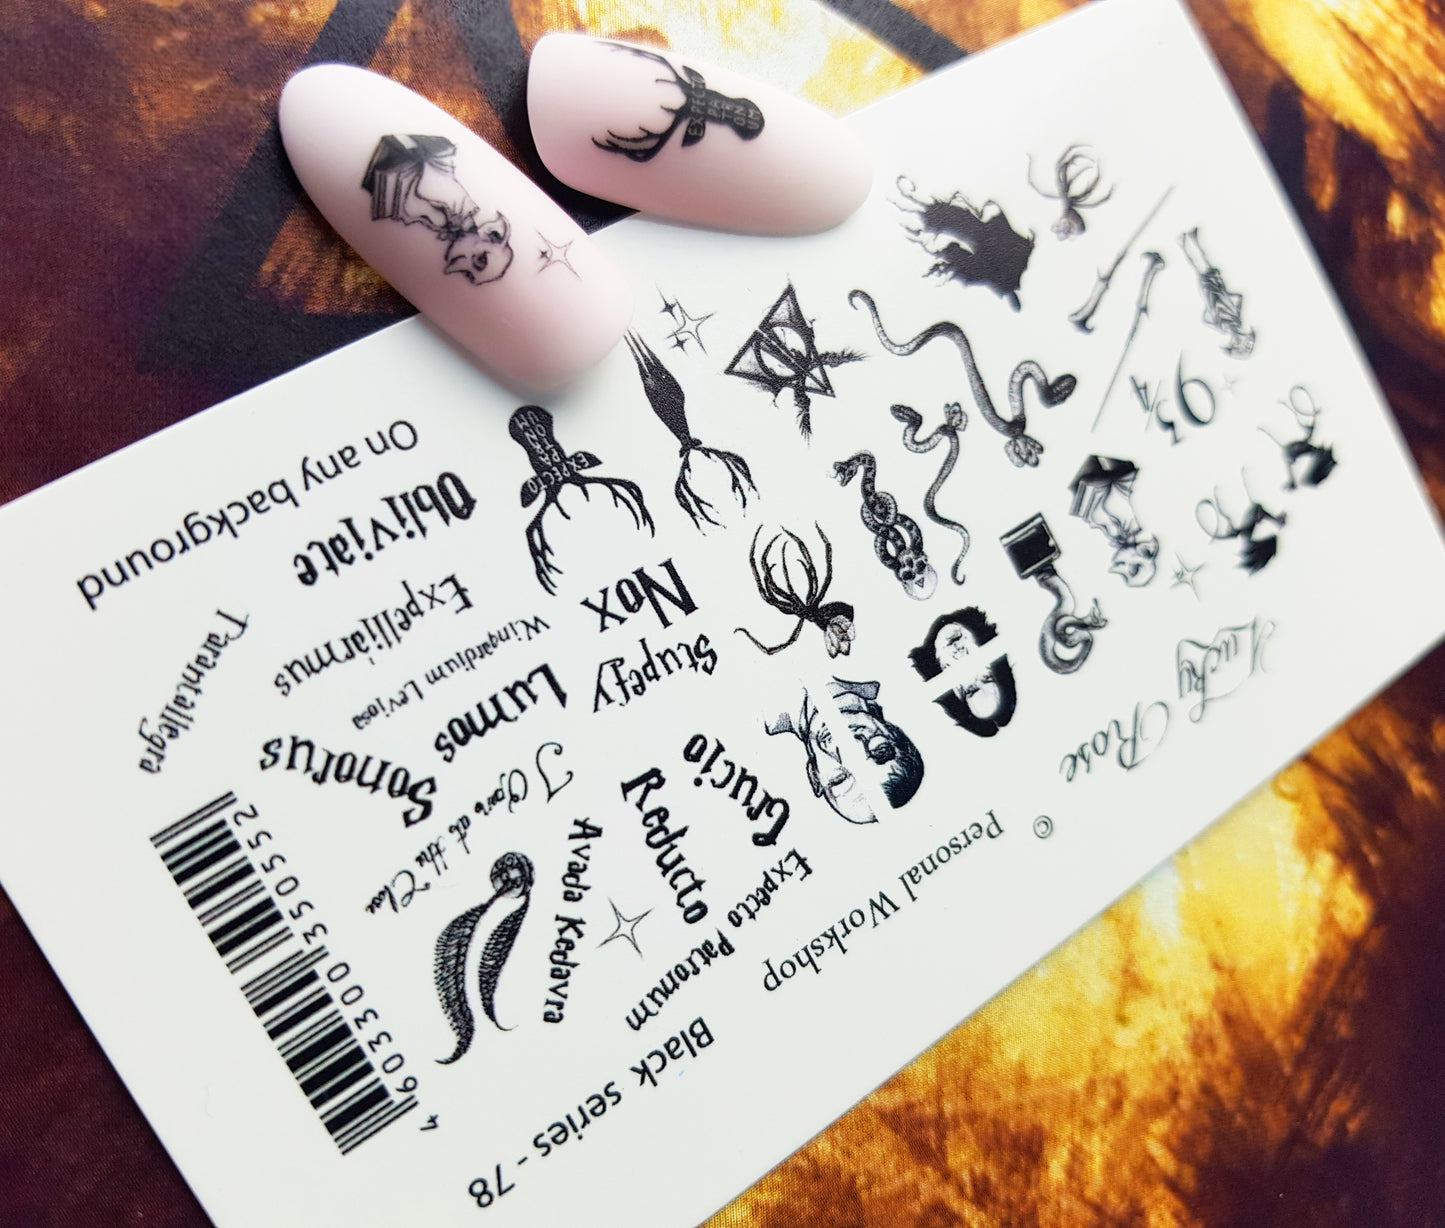 Lucky Rose
© Personal Workshop
Black series - 78
On any background
9¾
EXPECTO
PATRONUM
EXPECTO
PATRONUM
Oblivjate
Expellijarmus
Wingardium Levjosa
Nox
Stupefy
Lumos
Sonorus
Tarantallegra
Crucjo
Reducto
Expecto Patromum
Avada Kedavra
I Open at the Close
4 603300 350552